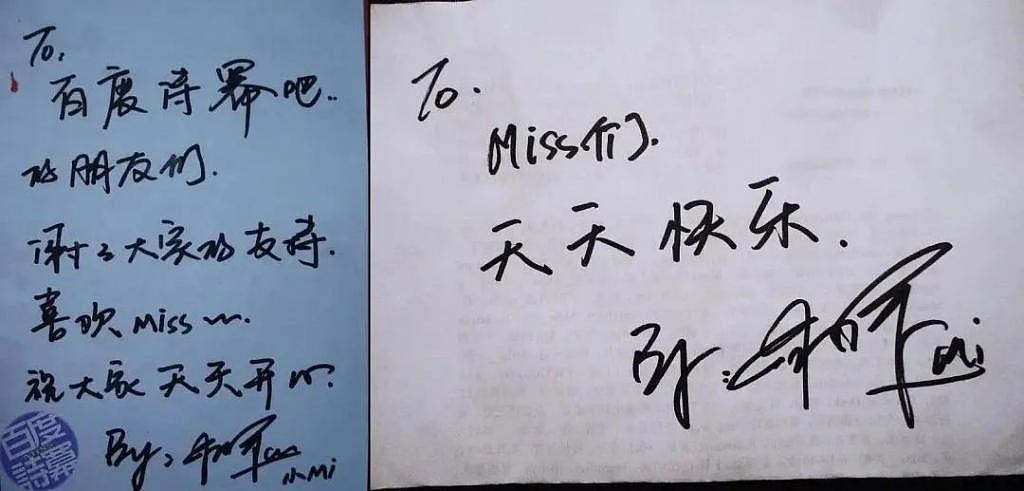 To,
百度诗幂吧..
的朋友们.
谢谢大家的支持.
喜欢Miss~.
祝大家天天开心.
By,
小Mi
百度
诗幂
To.
Miss们.
天天快乐.
By:
Mi